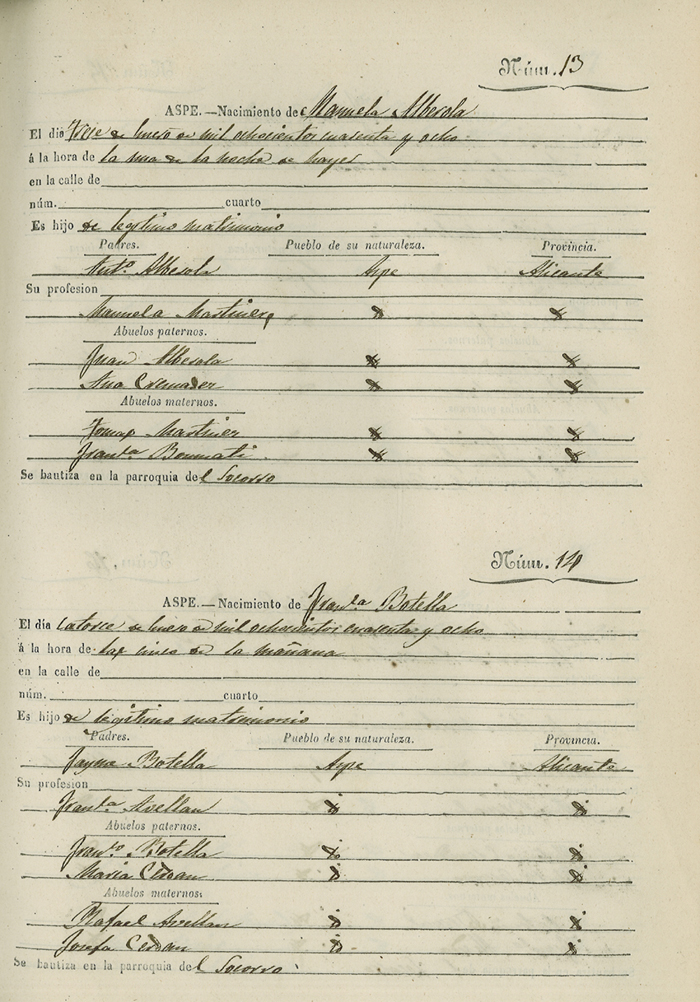 Núm. 13
ASPE.—Nacimiento de Manuela Alberola
El dia Trece de Enero de mil ochocientos cuarenta y ocho
á la hora de la una de la noche de hayer
en la calle de
núm. cuarto
Es hijo de legitimo matrimonio
Padres. Pueblo de su naturaleza. Provincia.
Antº. Alberola Aspe Alicante
Su profesion
Manuela Martinez
Abuelos paternos.
Juan Alberola
Ana Cremades
Abuelos maternos.
Tomas Martinez
Franca Bonmati
Se bautiza en la parroquia del Socorro
Núm. 14
ASPE.—Nacimiento de Franca Botella
El dia Catorce de Enero de mil ochocientos cuarenta y ocho
á la hora de las cinco de la mañana
en la calle de
núm. cuarto
Es hijo de legitimo matrimonio
Padres. Pueblo de su naturaleza. Provincia.
Jayme Botella Aspe Alicante
Su profesion
Franca Avellan
Abuelos paternos.
Franco Botella
Maria Cerdan
Abuelos maternos.
Rafael Avellan
Josefa Cerdan
Se bautiza en la parroquia del Socorro